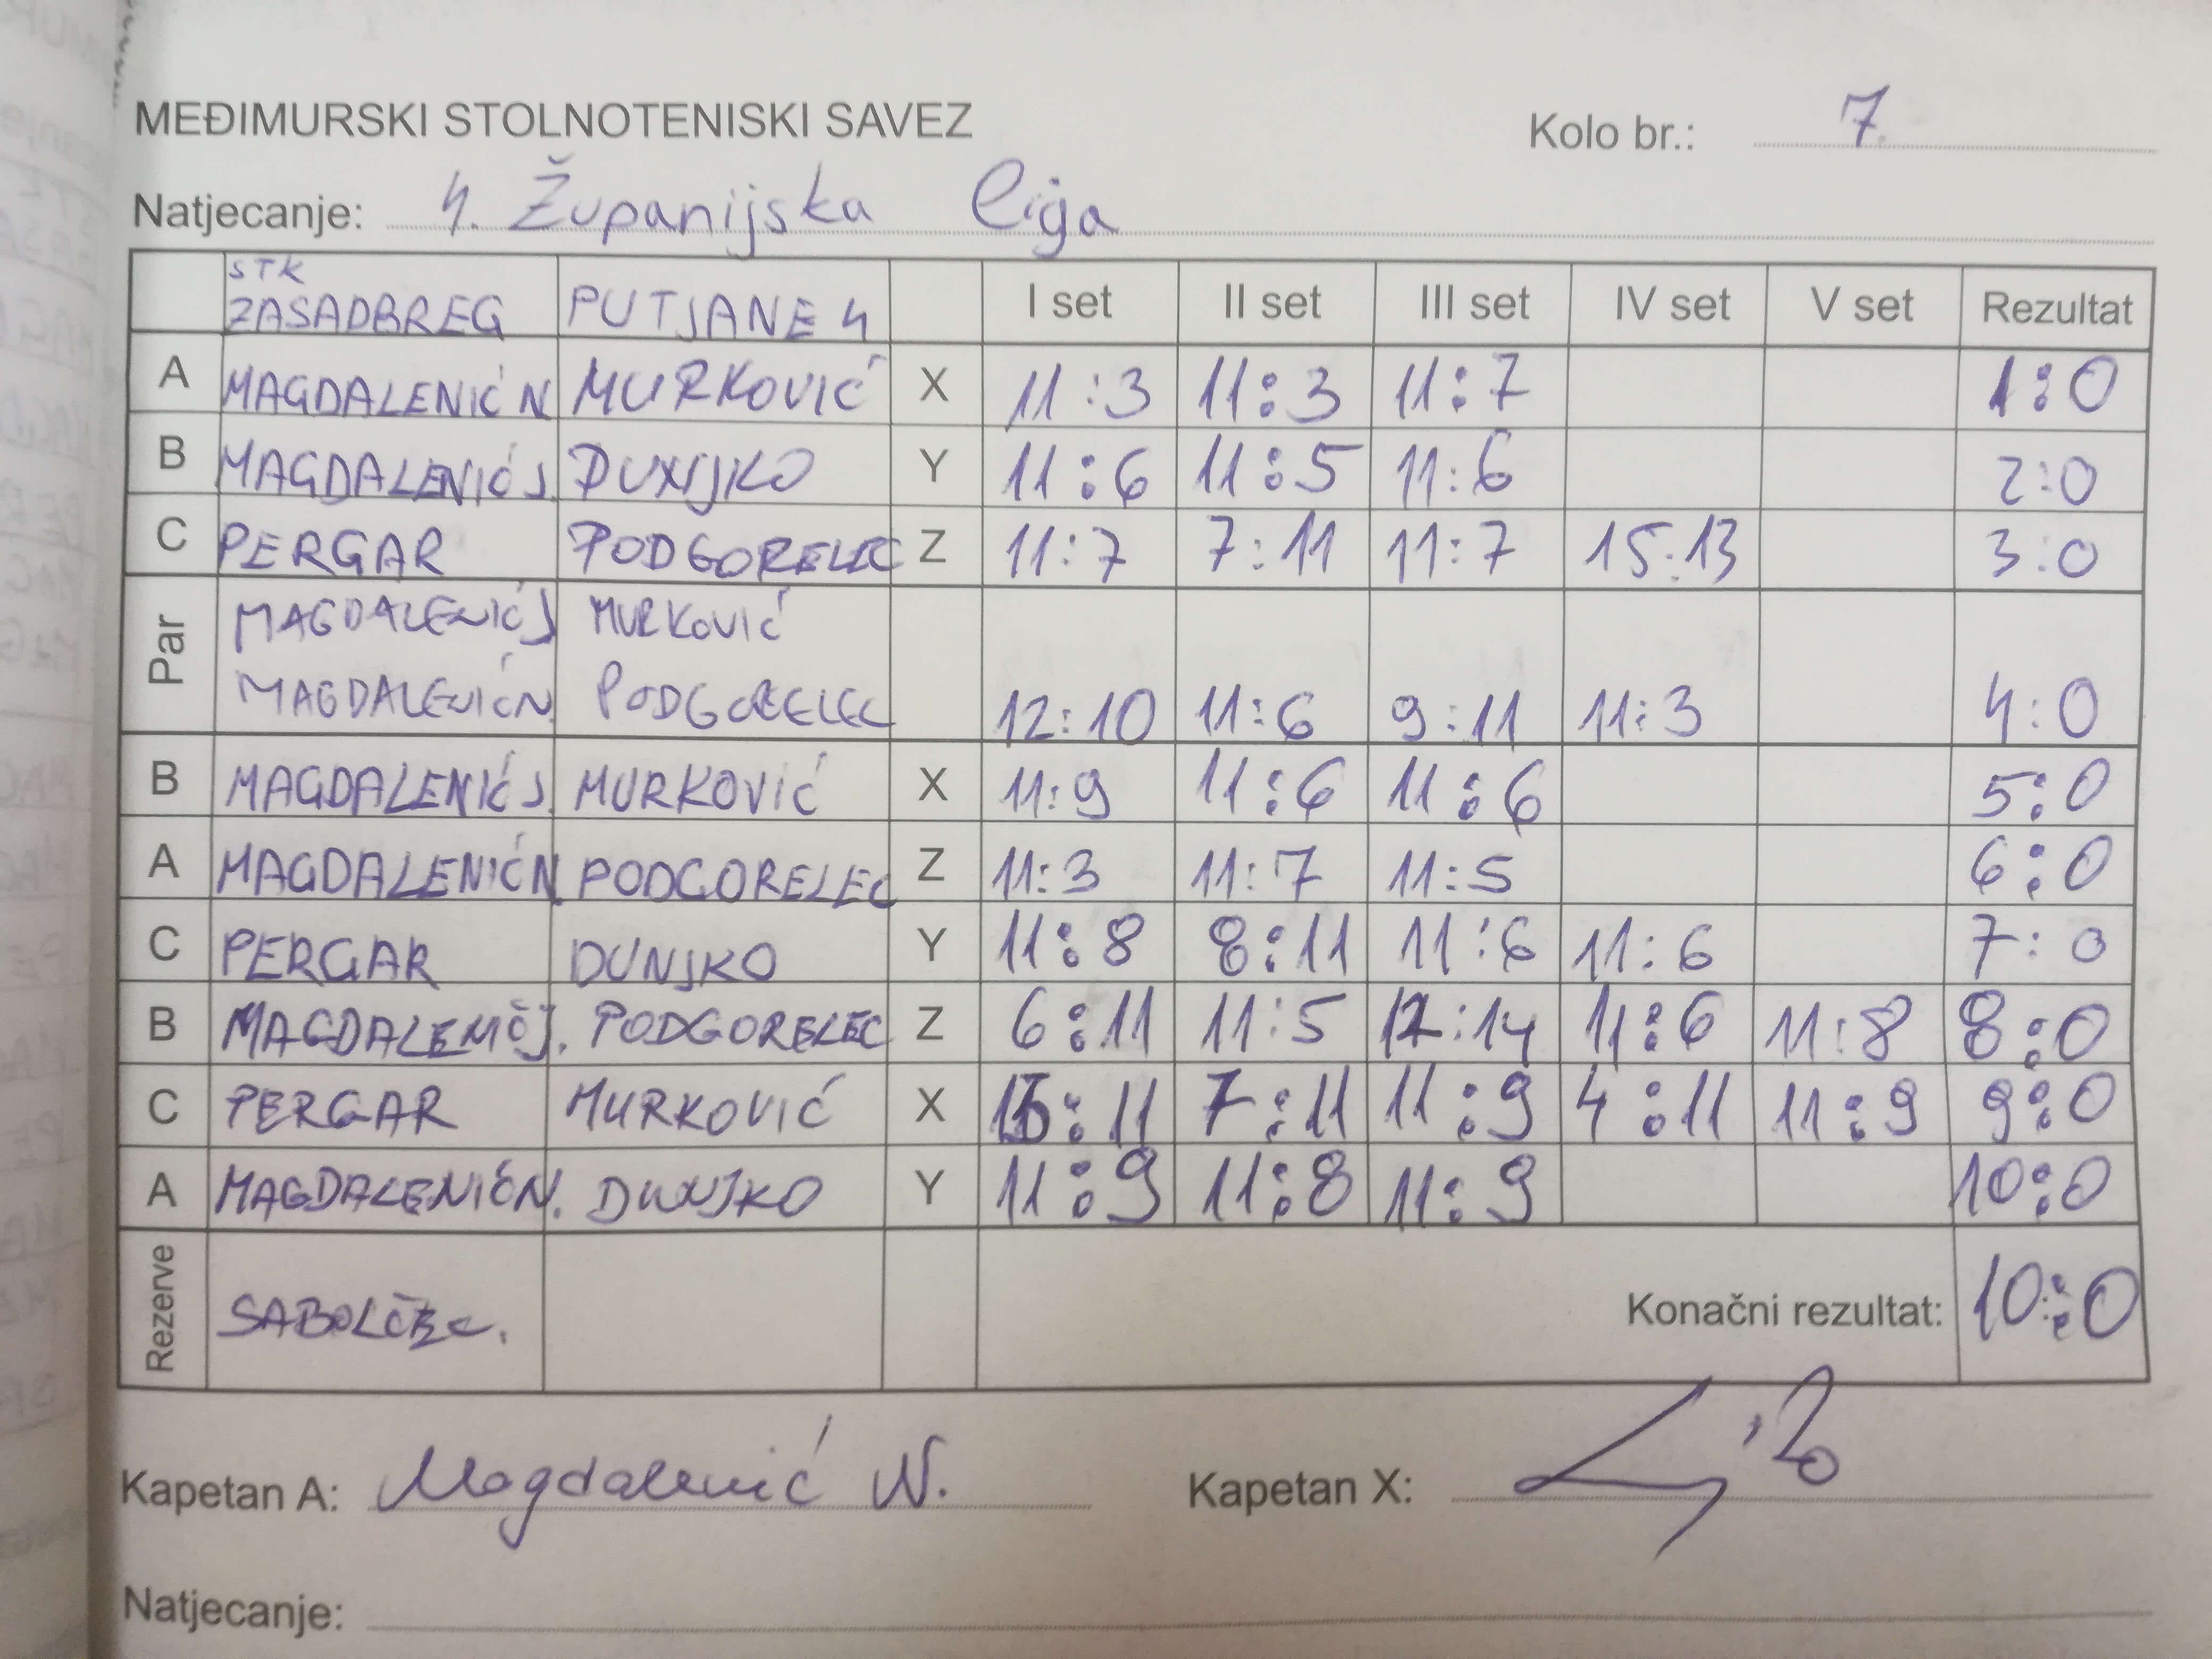 MEĐIMURSKI STOLNOTENISKI SAVEZ Kolo br.: 7.
Natjecanje: 4. Županijska liga
STK
ZASADBREG PUTJANE 4 I set II set III set IV set V set Rezultat
A MAGDALENIĆ N MURKOVIĆ X 11:3 11:3 11:7 1:0
B MAGDALENIĆ J. DUNJKO Y 11:6 11:5 11:6 2:0
C PERGAR PODGORELEC Z 11:7 7:11 11:7 15:13 3:0
Par MAGDALENIĆ J MURKOVIĆ
MAGDALENIĆ N. PODGORELEC 12:10 11:6 9:11 11:3 4:0
B MAGDALENIĆ J. MURKOVIĆ X 11:9 11:6 11:6 5:0
A MAGDALENIĆ N. PODGORELEC Z 11:3 11:7 11:5 6:0
C PERGAR DUNJKO Y 11:8 8:11 11:6 11:6 7:0
B MAGDALENIĆ J. PODGORELEC Z 6:11 11:5 12:14 11:6 11:8 8:0
C PERGAR MURKOVIĆ X :11 7:11 11:9 4:11 11:9 9:0
A MAGDALENIĆ N. DUNJKO Y 11:9 11:8 11:9 10:0
Rezerve Konačni rezultat: 10:0
Kapetan A: Magdalenić N. Kapetan X:
Natjecanje: